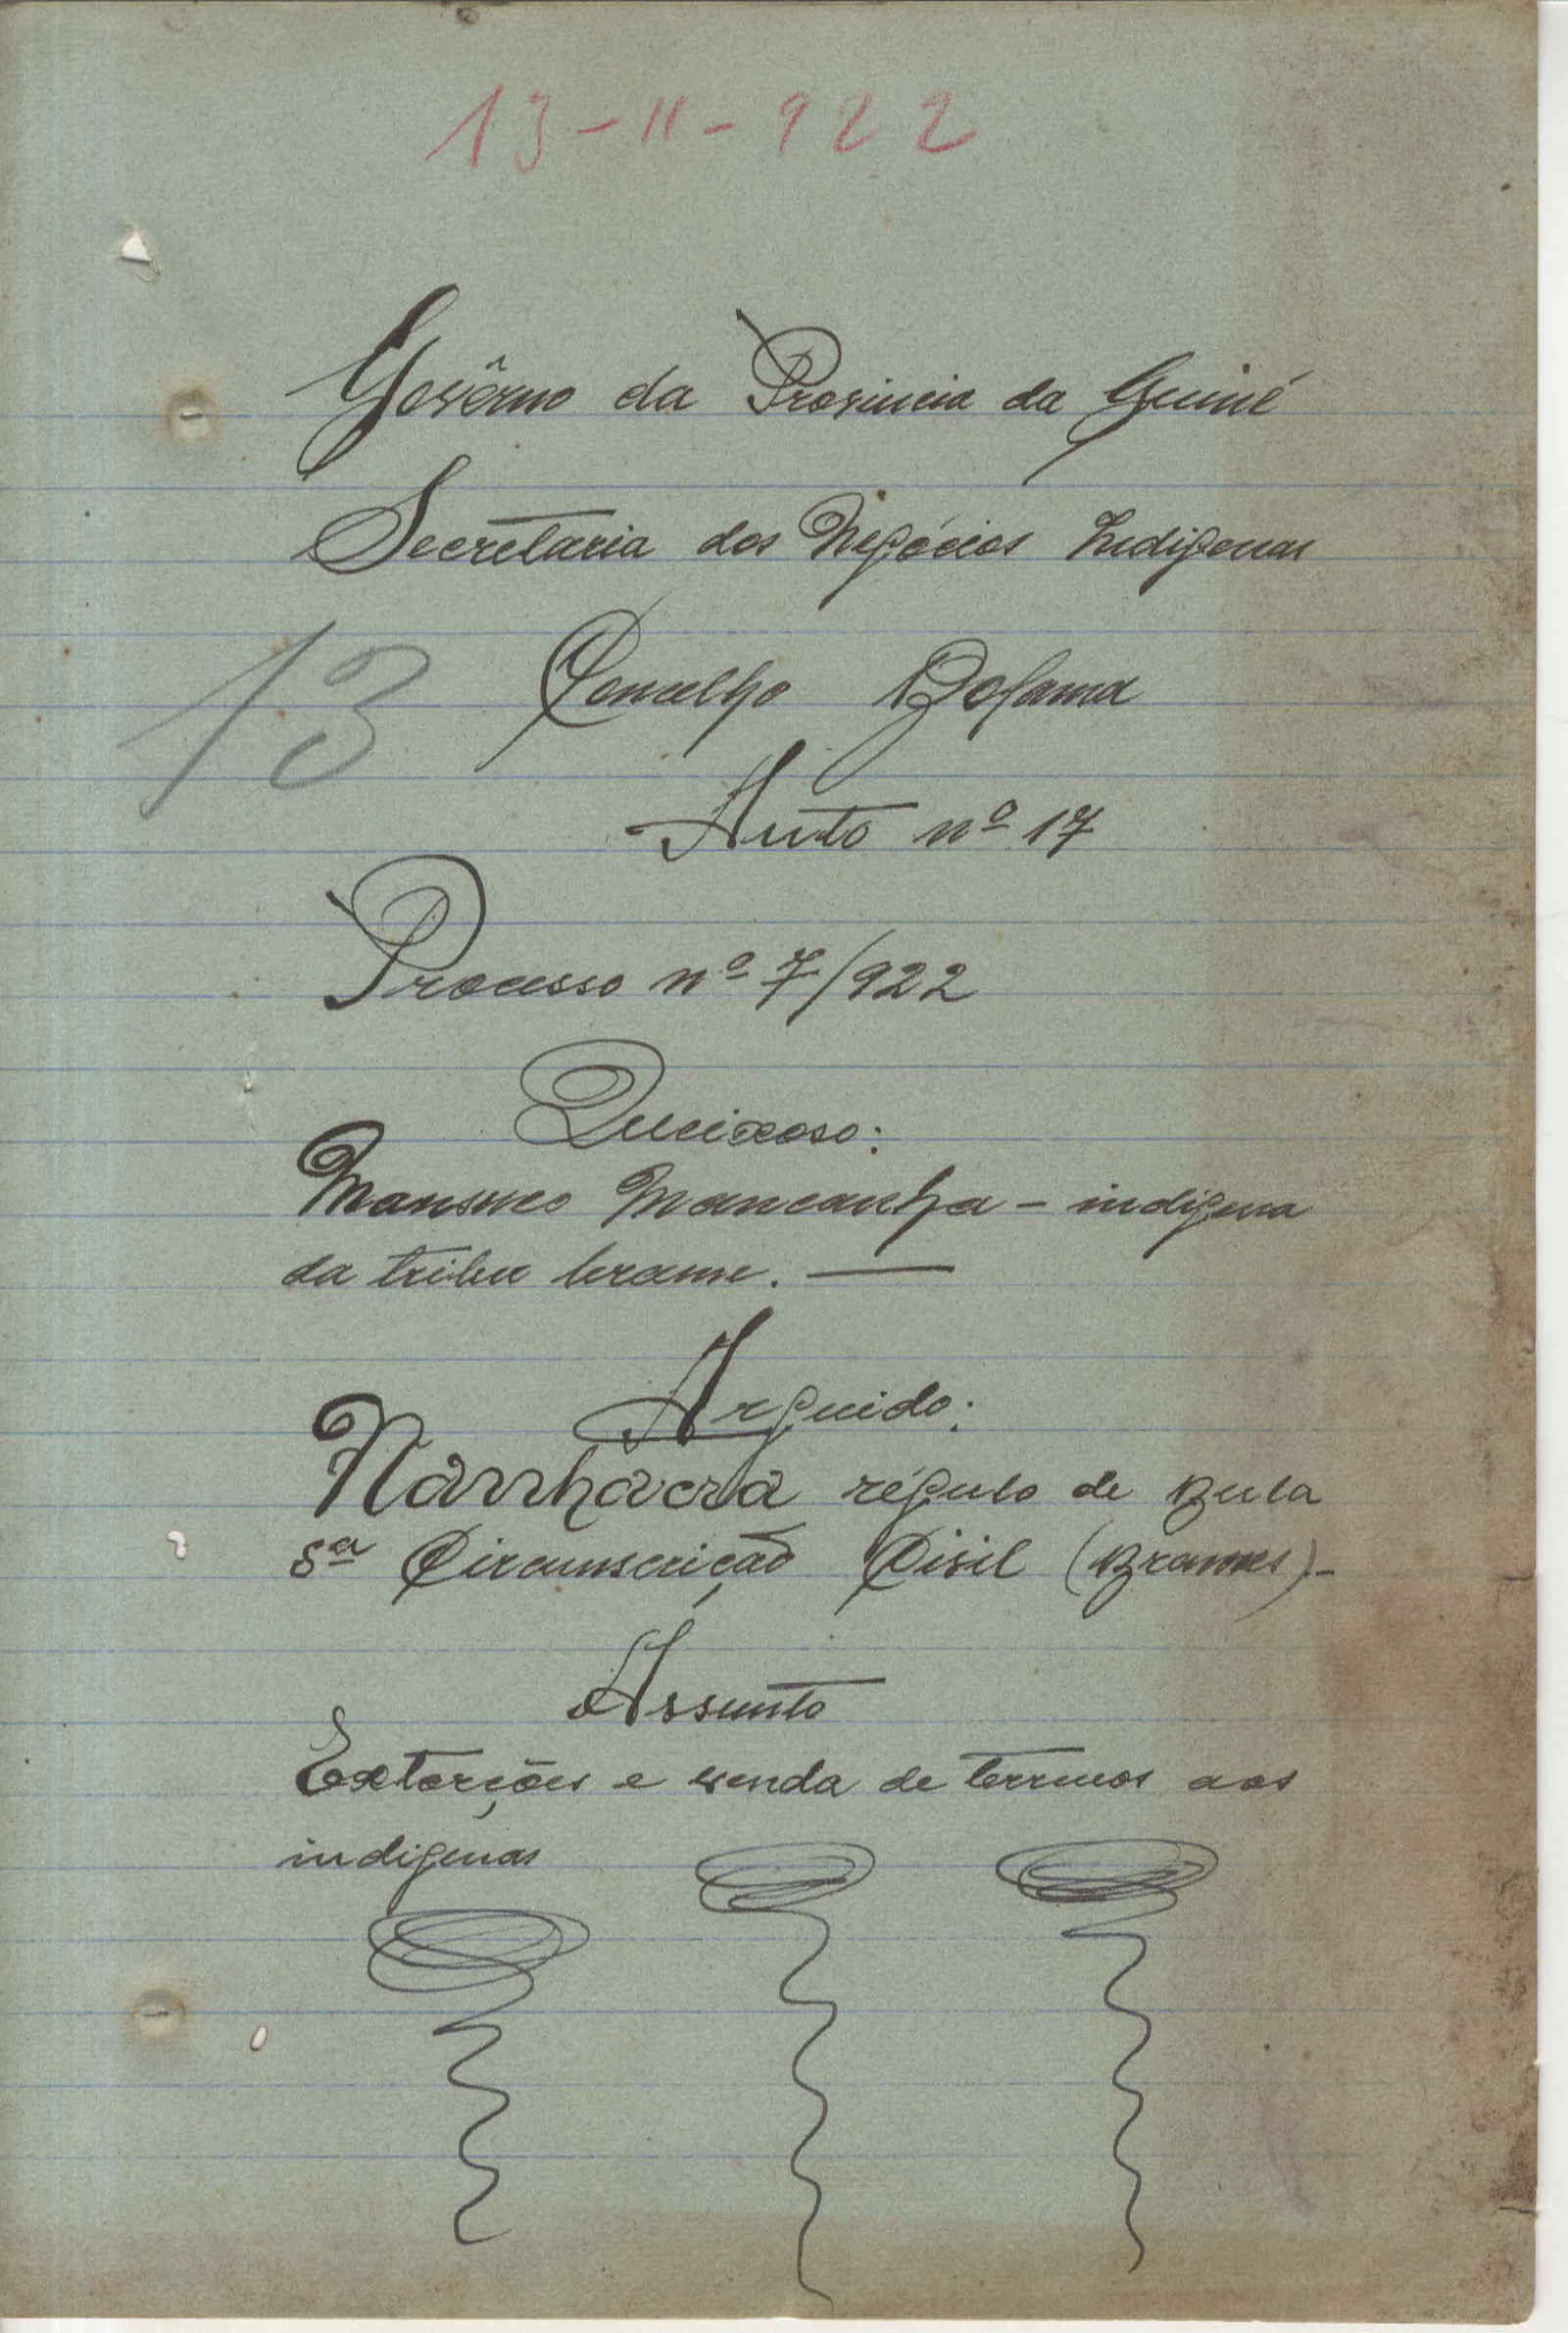 13-11-922
Govêrno da Provincia da Guiné
Secretaria dos Negócios Indigenas
13
Concelho Bolama
Auto nº 17
Processo nº 7/922
Queixoso:
Mancanha - indigena
da tribu brame.
Arguido:
régulo de Bula
8ª Circunscrição Civil (Brames)-
Assunto
Extorções e venda de terrenos aos
indigenas